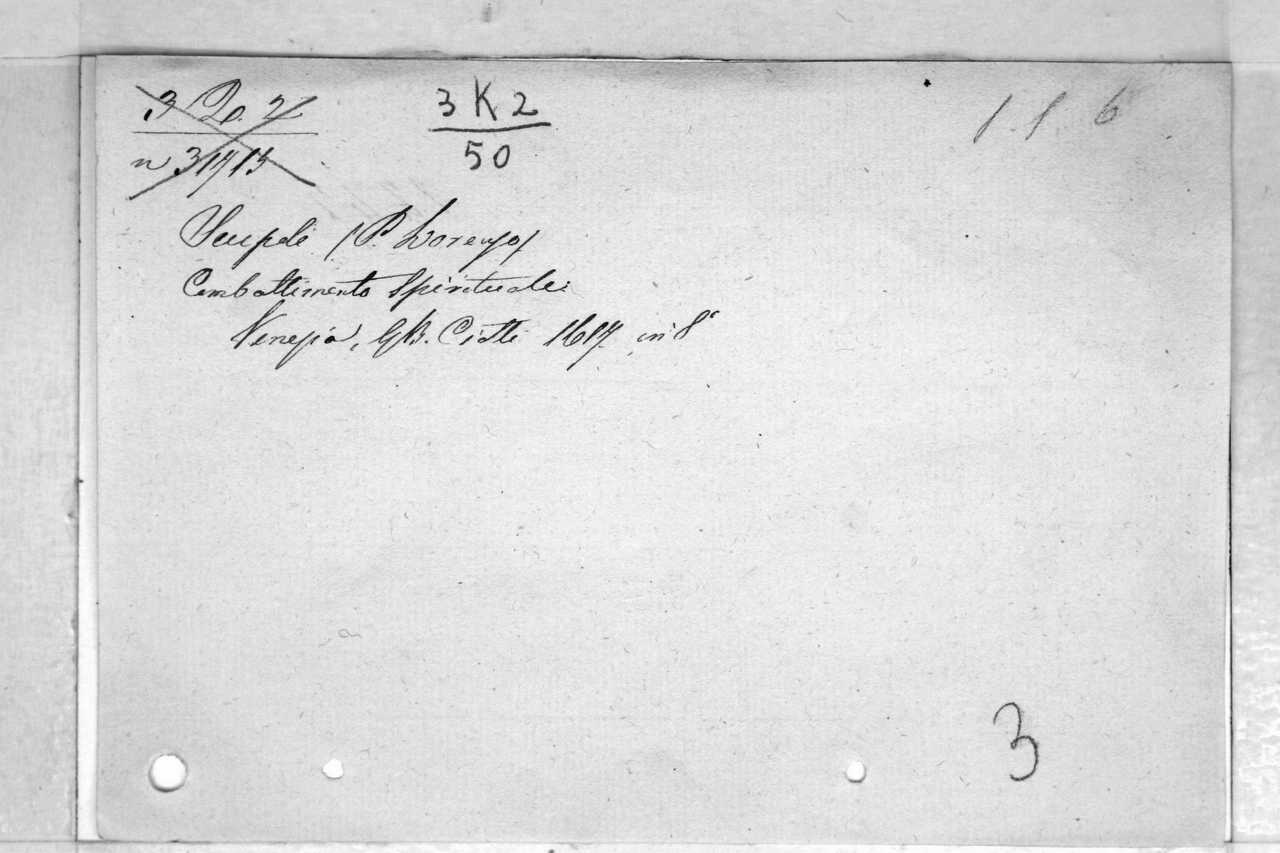 3 K 2
50
1. 1. 6
Scupoli (P. Lorenzo)
Combattimento Spirituale:
Venezia, G.B. Ciotti 1617. in 8°
3